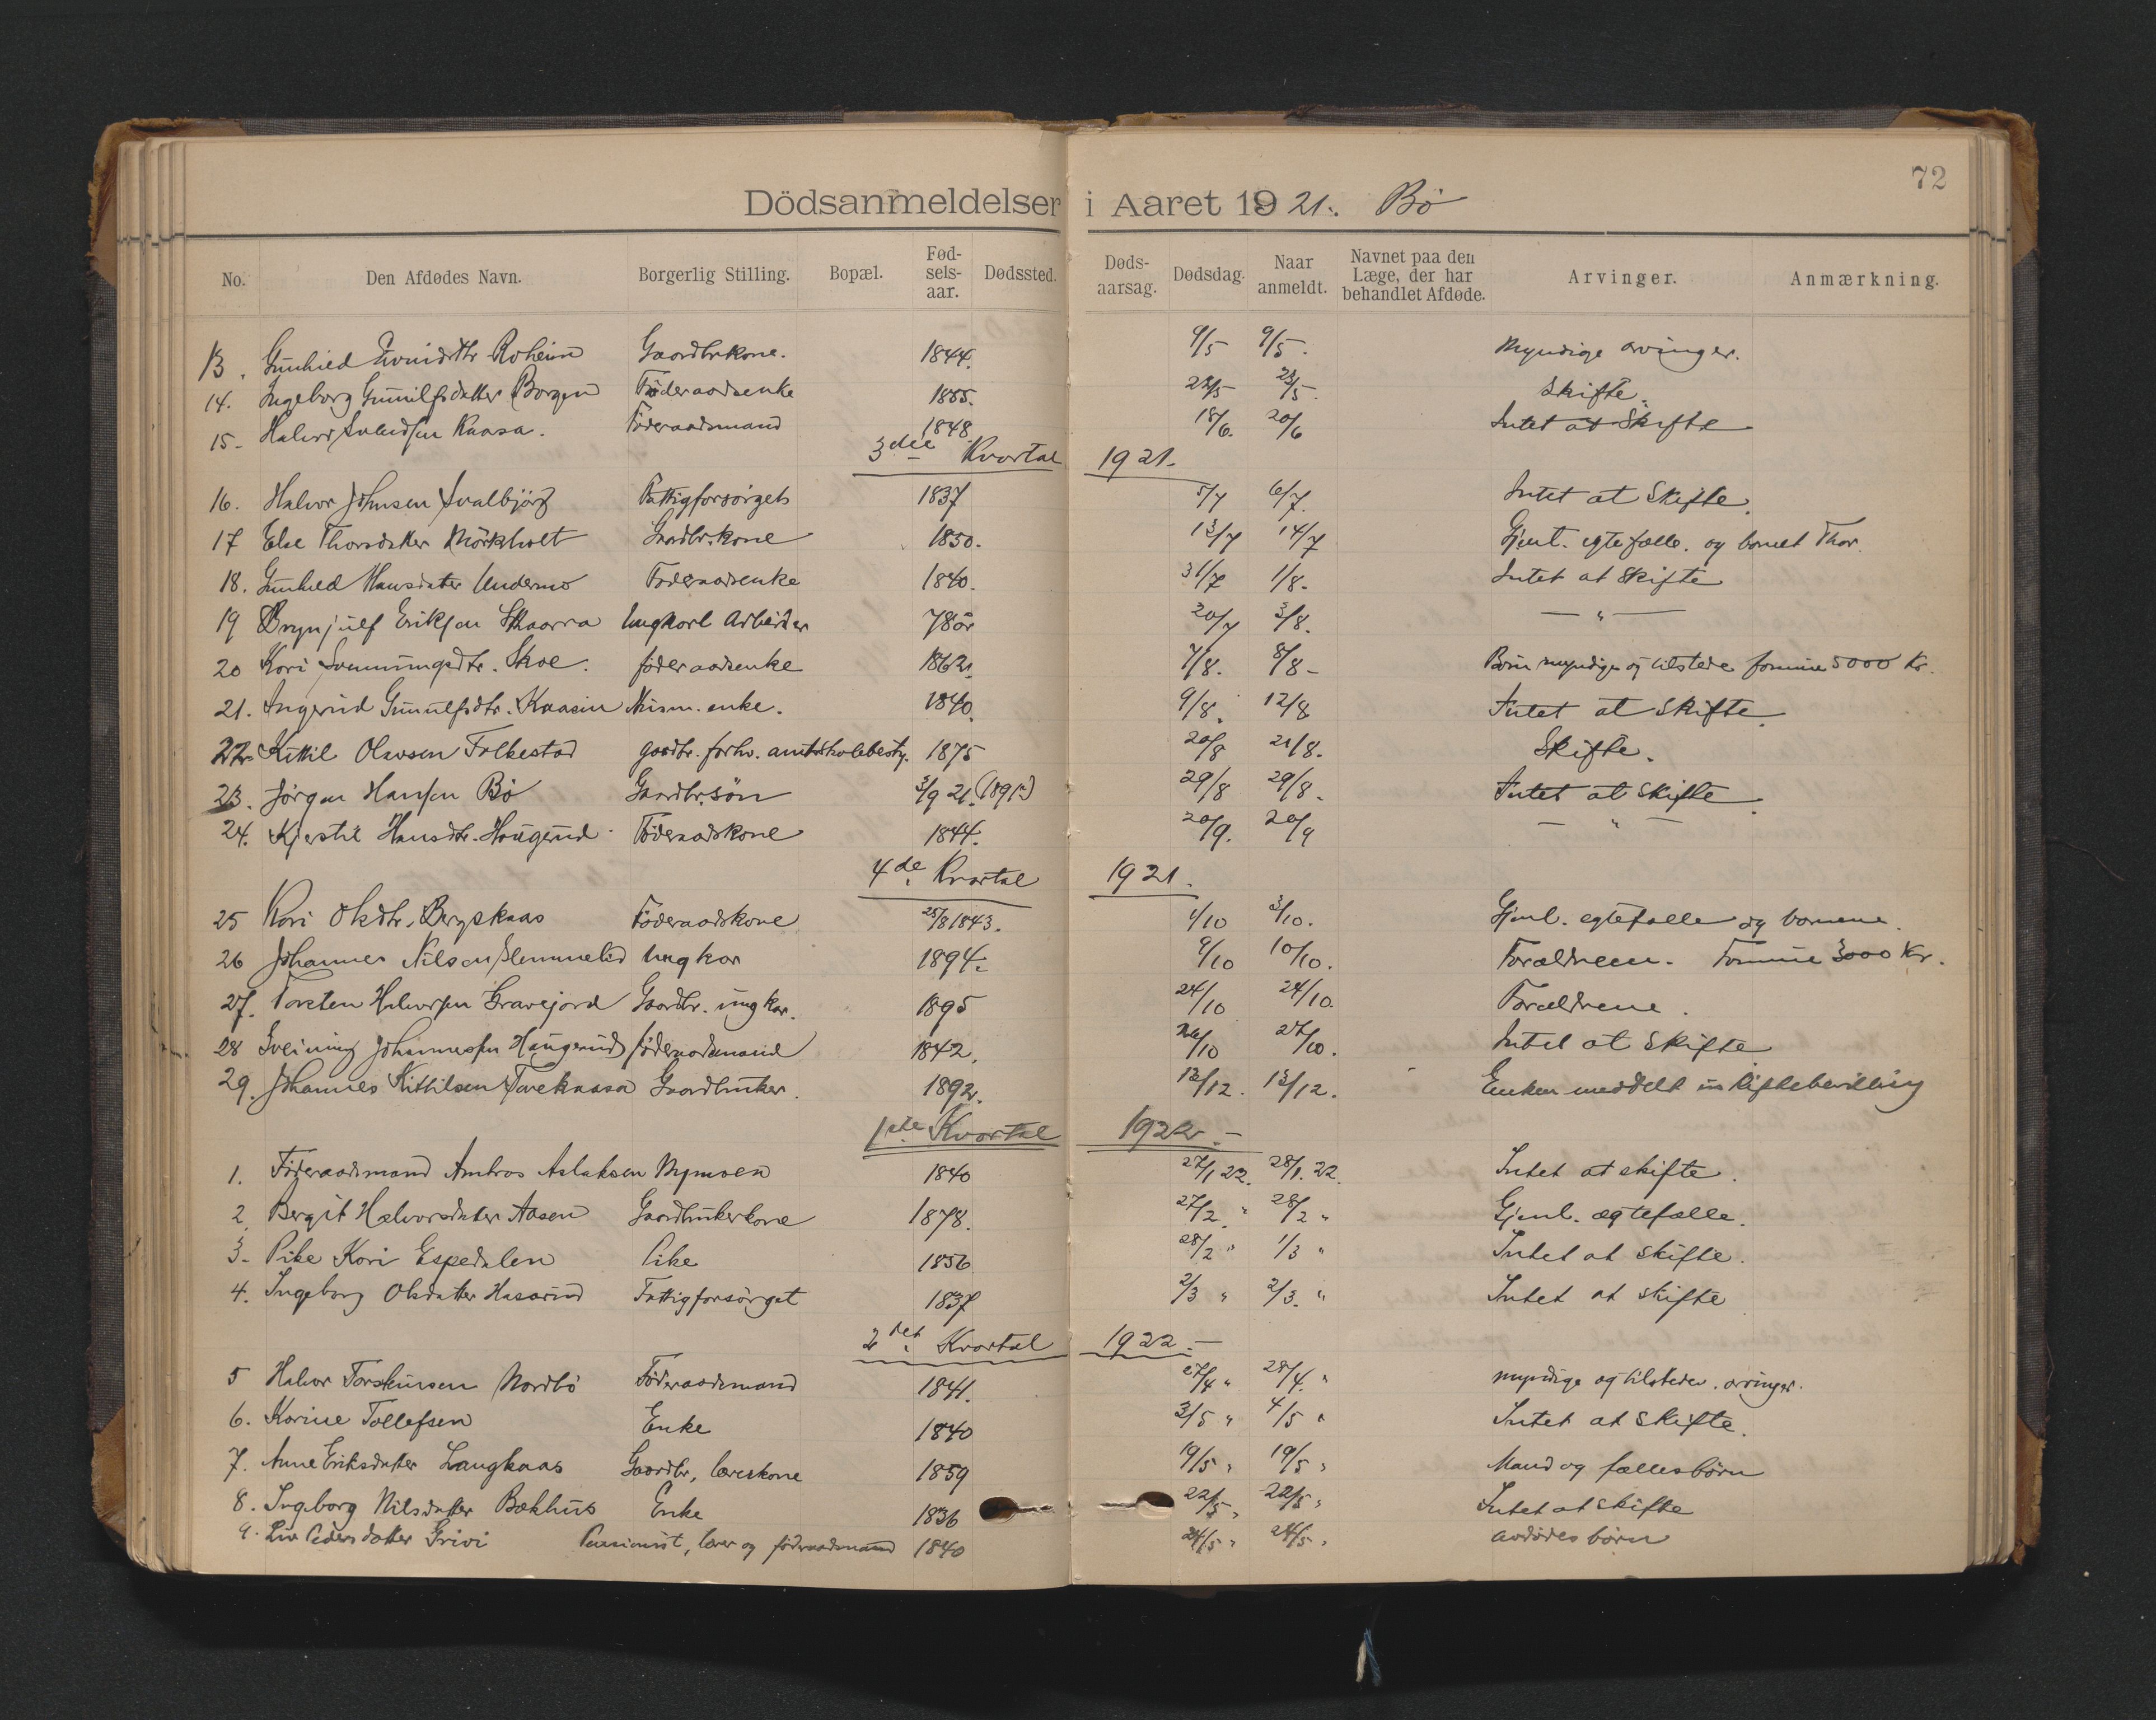 72
Dödsanmeldelser i Aaret 1921. Bö
No. Den Afdødes Navn. Borgerlig Stilling. Bopæl. Fød-sels-aar. Dødssted. Døds-aarsag. Dødsdag. Naar anmeldt. Navnet paa den Læge, der har behandlet Afdøde. Arvinger. Anmærkning.
13. Gunhild Roheim Gaardbrkone. 1844. 9/5 9/5. Myndige arvinger.
14. Ingeborg Gunulfsdatter Borgen Föderaadsenke 1855. 22/5 23/5. Skifte.
15. Halvor Svendsen Kaasa. Föderaadsmand 1848. 18/6. 20/6 Intet at Skifte
3die Kvartal 1921.
16. Halvor Johnsen Svalbjörg Fattigforsörget 1837 5/7 6/7. Intet at Skifte.
17 Else Thorsdatter Mörkholt Gaardbr.kone 1850. 13/7 14/7 Gjenl. egtefælle. og barnet Thor.
18. Gunhild Hansdatter Undermo Foderaadsenke 1840. 31/7 1/8. Intet at Skifte
19 Brynjulf Eriksen Skaarra Ungkarl Arbeider 78 år 20/7 3/8. — " —
20 Kari Svenningsdtr. Skoe. föderaadsenke 1862. 7/8. 8/8 - Börn myndige og tilstede formue 5000 Kr.
21. Ingerid Gunulfsdtr. Kaasin Husm. enke. 1840. 9/8. 12/8 Intet at Skifte.
22. Kittil Olavsen Folkestad gaardbr. forhv. amtskolebesty. 1875 20/8 21/8. Skifte.
23. Jörgen Hansen Bö Gaardbr.sön 3/9 21. 29/8 29/8. Intet at Skifte.
24. Kjersti Hansdtr. Haugerud Föderaadskone 1844. 20/9. 20/9 — " —
4de Kvartal 1921.
25 Kari Olsdtr. Bergskaas Föderaadskone 25/8 1843. 1/10 3/10. Gjenl. egtefælle og barnene.
26 Johannes Nilsen Slemmelid Ungkar 1894. 9/10 10/10. Forældrene. Formue 3000 Kr.
27. Torsten Halvorsen Gravejord Gaardbr. ungkar. 1895 24/10 24/10. Forældrene.
28 Sveinung Johannessen Haugerud föderaadsmand 1842. 26/10 27/10. Intet at Skifte
29. Johannes Kittilsen Torekaasa Gaardbruker. 1892. 13/12. 13/12. Enken meddelt uskiftebevilling
1ste Kvartal 1922. -
1. Föderaadsmand Ambros Aslaksen Nymoen 1840 27/1 22. 28/1. 22. Intet at skifte.
2. Bergit Halvorsdatter Aasen Gaardbrukerkone 1878. 27/2. " 28/2 " Gjenl. ægtefælle.
3. Pike Kari Espedalen Pike 1856 28/2 " 1/3 " Intet at skifte.
4. Ingeborg Olsdatter Hasarud Fattigforsörget 1837 2/3 " 2/3. " Intet at skifte
2det Kvartal 1922. -
5 Halvor Torsteinsen Nordbö Föderaadsmand 1841. 27/4 " 28/4. " myndige og tilstedev. arvinger.
6. Karine Tollefsen Enke 1840 3/5 " 4/5 " Intet at skifte.
7. Anne Eriksdatter Langkaas Gaardbr, lærerkone 1859 19/5 " 19/5 " Mand og fællesbørn
8. Ingeborg Nilsdatter Bækhus Enke 1836 22/5 " 22/5 " Intet at skifte
9. Liv Pedersdatter Grivi Pensionist, lærer og föderaadsmand 1840 24/5 " 24/5 " avdödes börn